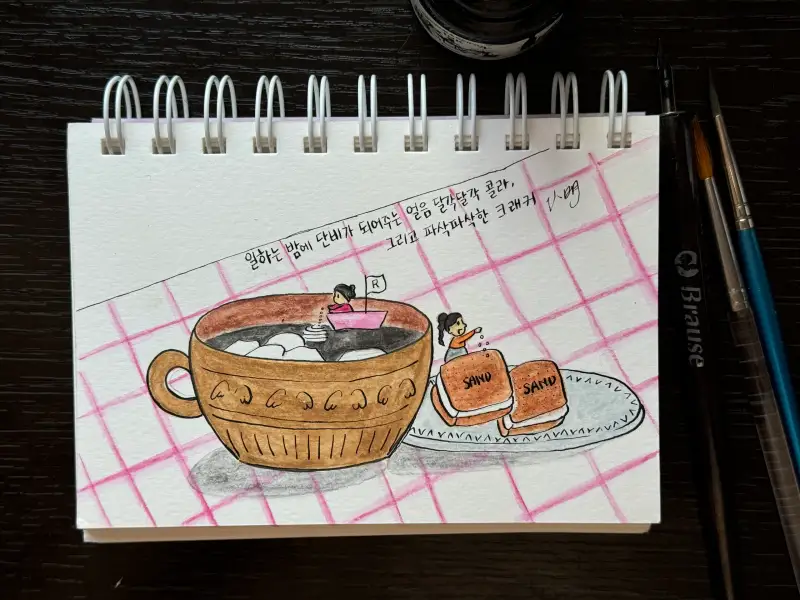 일하는 밤에 단비가 되어주는 얼음 달각달각 콜라,
그리고 파삭파삭한 크래커
R
SAND
SAND
Brause